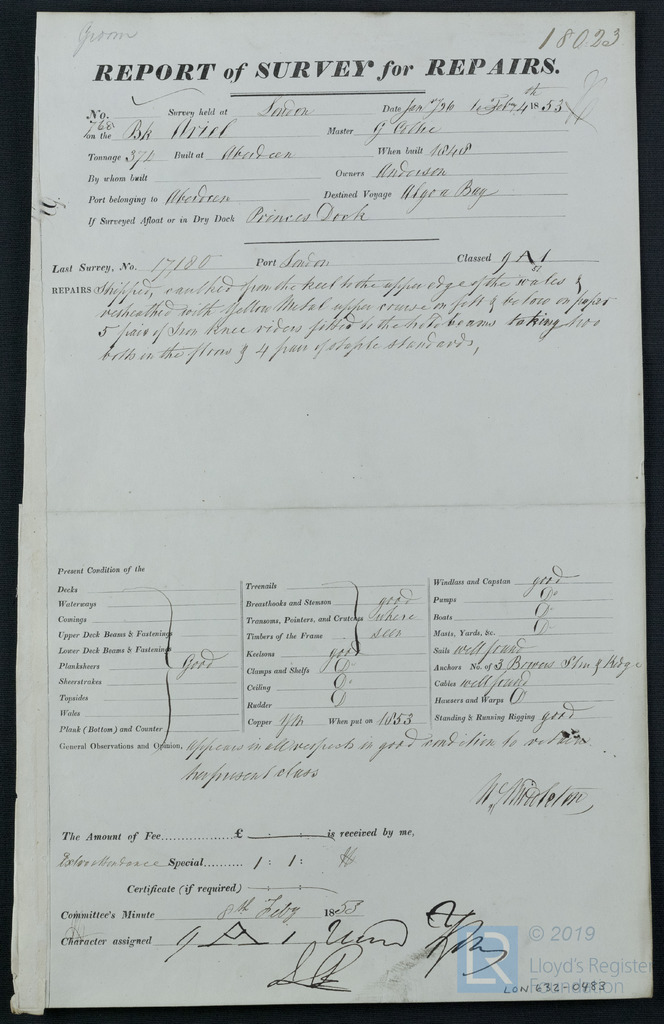 Groom
18023
REPORT of SURVEY for REPAIRS.
No. 768 Survey held at London Date Jany 26 to Feby 4th 1853
on the Bk Ariel Master G Cellie
Tonnage 371 Built at Aberdeen When built 1848
By whom built Owners Anderson
Port belonging to Aberdeen Destined Voyage Algoa Bay
If Surveyed Afloat or in Dry Dock Princes Dock
Last Survey, No. 17180 Port London Classed 9 A 1
51
REPAIRS Stripped, caulked from the keel to the upper edge of the wales &
resheathed with Yellow Metal upper course on felt & below on paper
5 pair of Iron Knee riders fitted to the hold beams taking two
bolts in the floors & 4 pair of staple standards,
Present Condition of the
Decks
Waterways
Comings
Upper Deck Beams & Fastenings
Lower Deck Beams & Fastenings
Planksheers Good
Sheerstrakes
Topsides
Wales
Plank (Bottom) and Counter
Treenails
Breasthooks and Stemson good
Transoms, Pointers, and Crutches where
Timbers of the Frame seen
Keelsons good
Clamps and Shelfs Do
Ceiling Do
Rudder Do
Copper YM When put on 1853
Windlass and Capstan good
Pumps Do
Boats Do
Masts, Yards, &c. Do
Sails well found
Anchors No. of 3 Bowers Strm & Kedge
Cables well found
Hausers and Warps Do
Standing & Running Rigging good
General Observations and Opinion, appears in all respects in good condition to retain
her present class
W Middleton
The Amount of Fee............£ : : is received by me,
Special.......... 1 : 1 :
Certificate (if required) : :
Committee's Minute 8th Feby 1853
Character assigned 9 A 1
© 2019
LR Lloyd's Register
Foundation
LON 632-0483